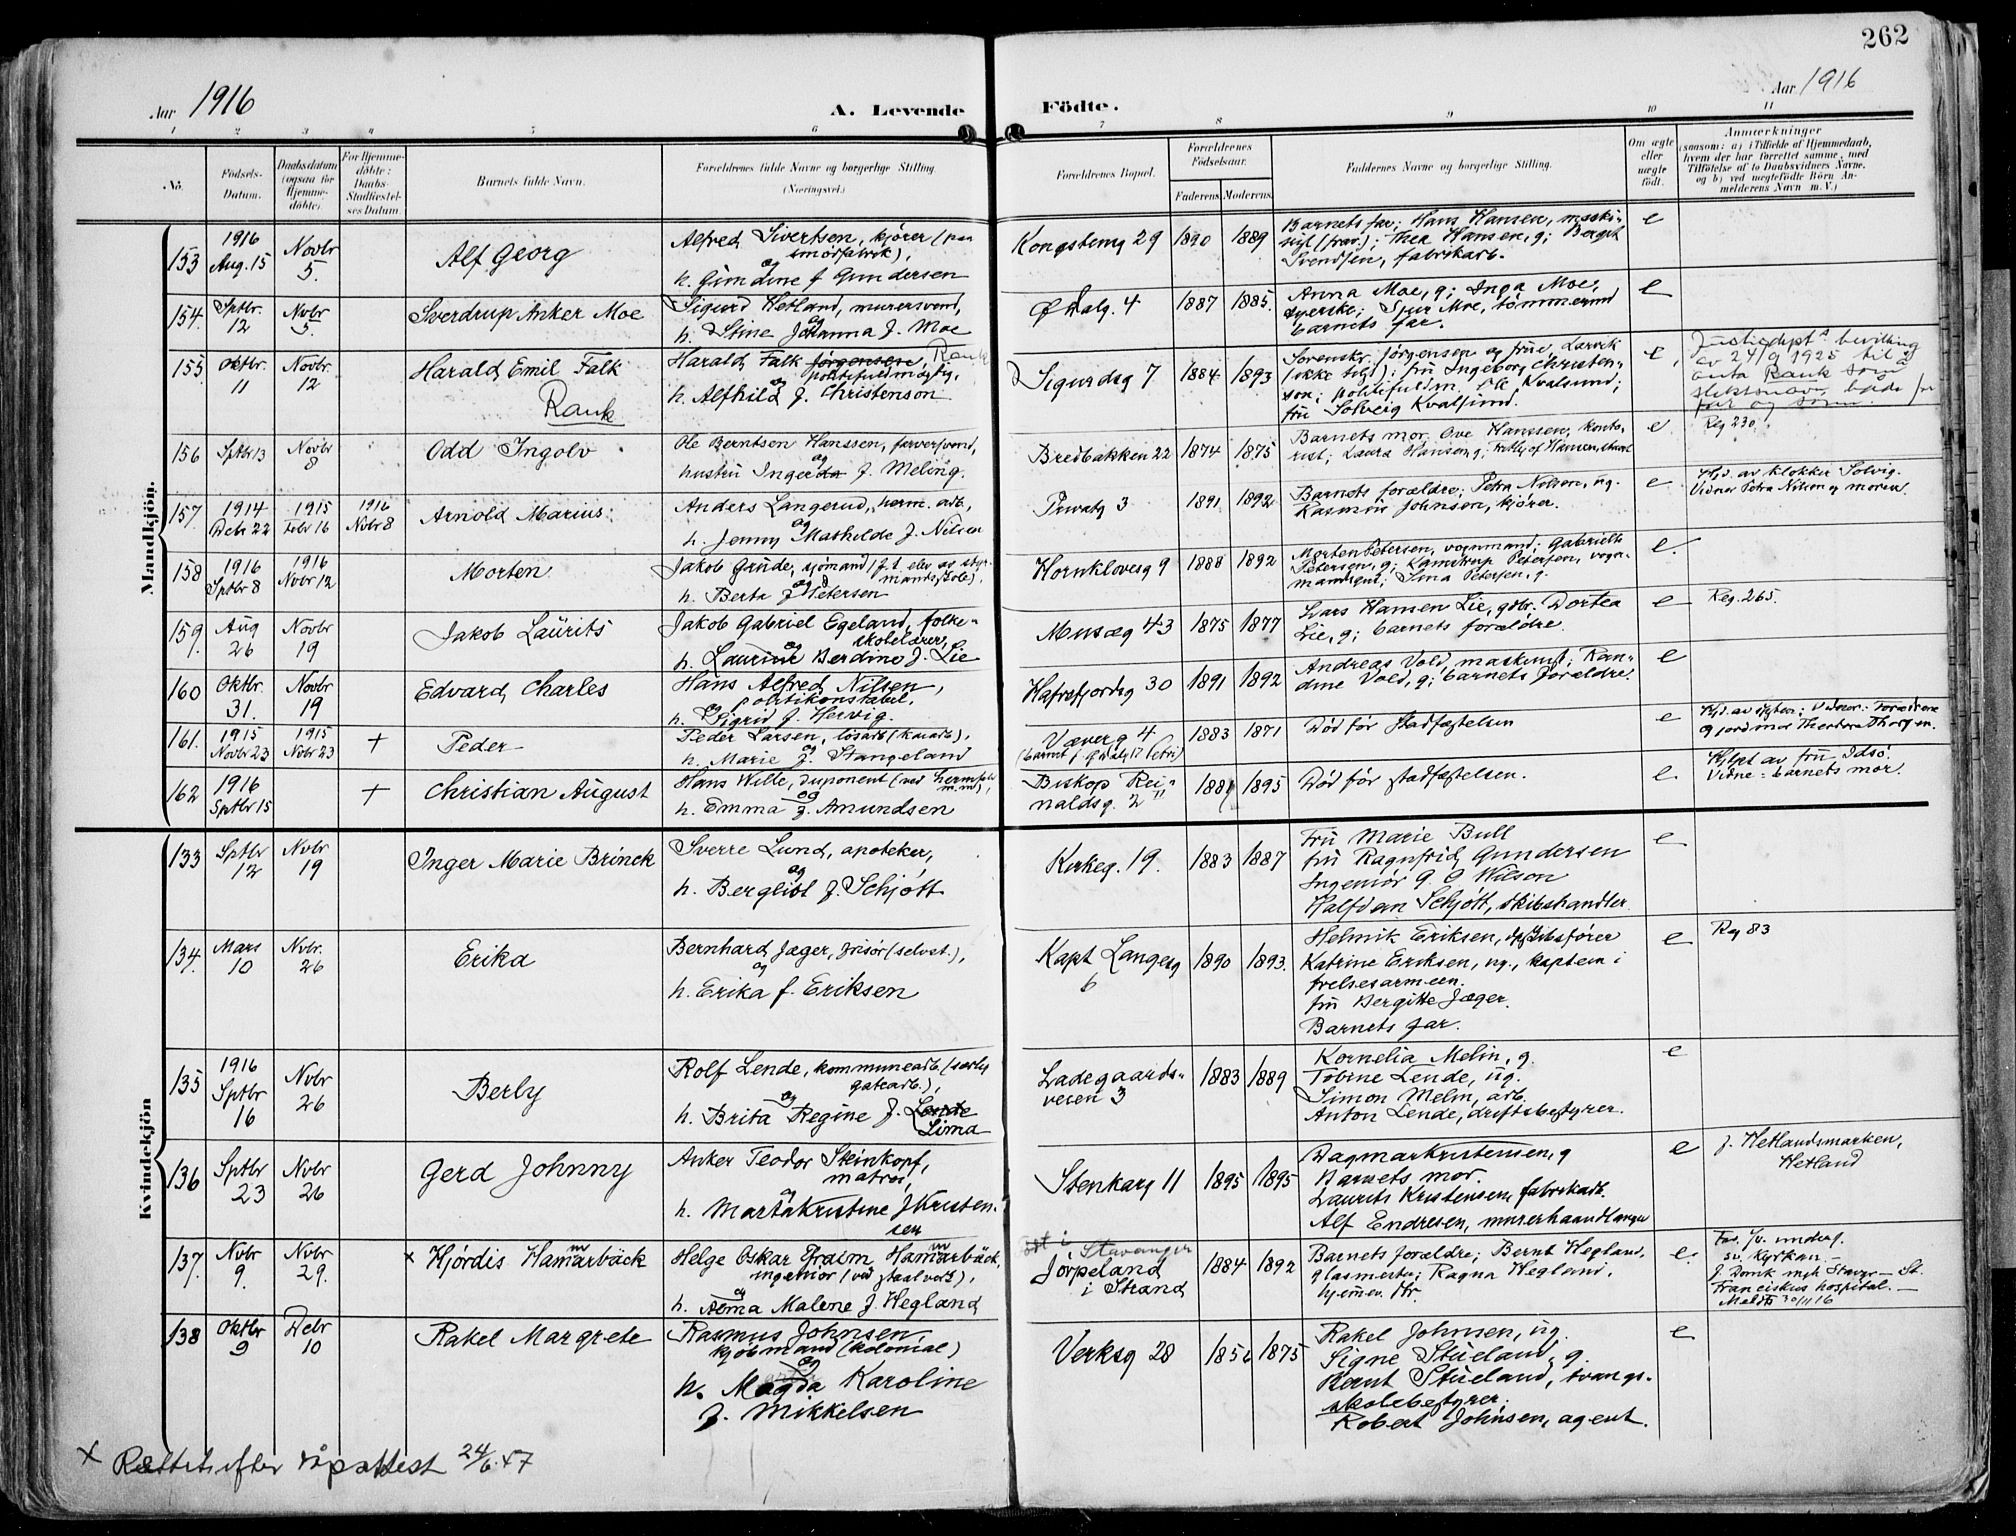 262
Aar 1916
A. Levende Födte.
Aar 1916
1 2 3 4 5 6 7 8 9 10 11
No.
Födsels-
Datum.
Daabsdatum
(ogsaa for
Hjemme-
döbte).
For Hjemme-
döbte:
Daabs-
Stadfæstel-
ses Datum.
Barnets fulde Navn.
Forældrenes fulde Navne og borgerlige Stilling.
(Næringsvei.)
Forældrenes Bopæl.
Forældrenes
Födselsaar.
Faderens. Moderens.
Faddernes Navne og borgerlige Stilling.
Om ægte
eller
uægte
födt.
Anmærkninger
(saasom: a) i Tilfælde af Hjemmedaab,
hvem der har forrettet samme, med
Tilföielse af to Daabsvidners Navne.
og b) ved uægtefödte Börn An-
melderens Navn m. V.)
Mandkjön.
153 1916 Aug. 15 Novbr 5. Alf Georg
Alfred Sivertsen, kjører (paa
smørfabrik),
og
h. Gundine f Gundersen
Kongsberg 29 1890 1889
Barnets far; Hans Hansen, maski-
nist (frav.); Thea Hansen, g; Berget
Svendsen, fabrikarb.
e
154. Sptbr. 12 Novbr 5. Sverdrup Anker Moe
Sigurd Hetland, murersvend,
og
h. Stine Johanna f. Moe
Ø Dalg. 4 1887 1885.
Anna Moe, g; Inga Moe,
syerske; Sjur Moe, tømmermd
barnets far.
e
155. Oktbr. 11 Novbr. 12 Harald Emil Falk
Rank
Harald Falk Jørgensen, Rank
politifuldmægtig,
og
h. Alfhild f. Christenson
Sigurdsg 7 1884 1893
Sorenskr. Jørgensen og frue, Larvik
(ikke tilst); fru Ingeborg Christen-
son; politifuldm. Ole Kvalsund;
fru Solveig Kvalsund.
e
Justisdepts bevilling
av 24/9 1925 til å
anta Rank som
slektsnavn både for
far og sønn.
156 Sptbr 13 Novbr 8 Odd Ingolv
Ole Berntsen Hanssen, farversvend,
og
hustru Ingerda f. Meling.
Bredbakken 22 1874 1875
Barnets mor, Ove Hanssen, konto-
rist; Laura Hanson g;
e
Reg 230.
157 1914 Debr 22 1915 Febr 16 1916 Novbr 8 Arnold Marius
Anders Langerud, herm. arb,
og
h. Jenny Mathilde f. Nilsen
Privatg 3 1891 1892
Barnets forældre; Petra Nilson, ug.
Rasmus Johnsen, kjører.
e
Hjd. av klokker Solvig.
Vidner Petra Nilson og moren.
158 1916 Sptbr 8 1916 Novbr 12 Morten
Jakob Grude, sjømand (f.t. elev av styr-
mandsskole),
og
h. Berta f Petersen
Hornklovesg 9 1888 1892
Morten Petersen, vognmand; Gabrielle
Petersen, g; Kamstrup Petersen, vogn-
mandsgut; Sina Petersen, g.
e.
159. Aug 26 Novbr 19 Jakob Laurits
Jakob Gabriel Egeland, folke-
skolelærer,
og
h. Laurine Berdine f. Lie
Musæg 43 1875 1877
Lars Hansen Lie, gdbr. Dortea
Lie, g; barnets forældre.
e
Reg. 265.
160 Oktbr. 31. Novbr 19 Edvard Charles
Hans Alfred Nilsen,
politikonstabel,
og
h. Sigrid f. Hervig.
Hafrsfjordsg 30 1891 1892
Andreas Vold, maskinist; Ran-
dine Vold, g; barnets forældre.
e
161. 1915 Novbr 23 1915 Novbr 23 + Peder
Peder Larsen, løsarb (kaiarb),
og
h. Marie f. Stangeland
Væverg 4 1883 1871
Død før Stadfæstelsen
e
162 1916 Sptbr 15 + Christian August
Hans Wille, disponent
og
h. Emma f. Amundsen
Biskop Rei-
naldsg. 2 1881 1895
Død før stadfæstelsen.
e
Hjdpt av fru Idsö.
Vidne: barnets mor.
Kvindekjön
133 Sptbr 12 Novbr 19 Inger Marie Brinck
Sverre Lund, apoteker,
og
h. Bergliot f. Schjøtt
Kirkeg. 19. 1883 1887
Fru Marie Bull
fru Ragnfrid Gundersen
Ingeniør G G Wilson
Halfdan Schjøtt, skibshandler.
e
134. Mars 10 Nvbr. 26 Erika
Bernhard Jæger, frisør (selvst.),
og
h. Erika f. Eriksen
Kapt Langesg
6 1890 1893.
Helmik Eriksen, skibsfører
Katrine Eriksen, ug., kaptein i
frelsesarmeen.
fru Bergitte Jæger.
Barnets far.
e
Reg 83
135 1916 Sptbr 16 Nvbr 26 Berly
Rolf Lende, kommunearb. (særlig
gatearb.),
og
h. Brita Regine f. Lende
Lima
Ladegaards-
veien 3 1883 1889
Kornelia Melin, g.
Tobine Lende, ug.
Simon Melin, arb.
Anton Lende, driftsbestyrer.
e
136 Sptbr 23 Nvbr 26 Gerd Johnny
Anker Teodor Steinkopf,
matros,
og
h. Marta Kristine f Kristen-
sen
Stenkarg 11 1895 1895
Dagmar Kristensen, g
Barnets mor.
Laurits Kristensen, fabrikarb.
Alf Endresen, murerhaandlanger
e
f. Hetlandsmarken,
Hetland
137. Nvbr 9. Nvbr 29. × Hjördis Hammarbäck
Helge Oskar Efraim Hammarbäck,
ingeniør (ved staalverk),
og
h. Alma Malene f. Hegland
Stavanger
Jörpeland
i Strand 1884 1892
Barnets forældre; Bernt Hegland,
glasmester; Ragna Hegland,
hjemmev. dtr.
e.
Far sv. underg.
sv. kyrkan –
f. Dronk mgh Stavgr – St.
Franciskus hospital. –
Meldt 30/11 16
138 Oktbr 9 Debr 10 Rakel Margrete
Rasmus Johnsen,
kjøbmand (kolonial)
og
h. Magda Karoline
f. Mikkelsen
Verksg 28 1856 1875
Rakel Johnsen, ug.
Signe Stueland, g.
Bernt Stueland, tvangs-
skolebestyrer.
Robert Johnsen, agent.
e
× Rettet efter dåpsattest 24/6.47